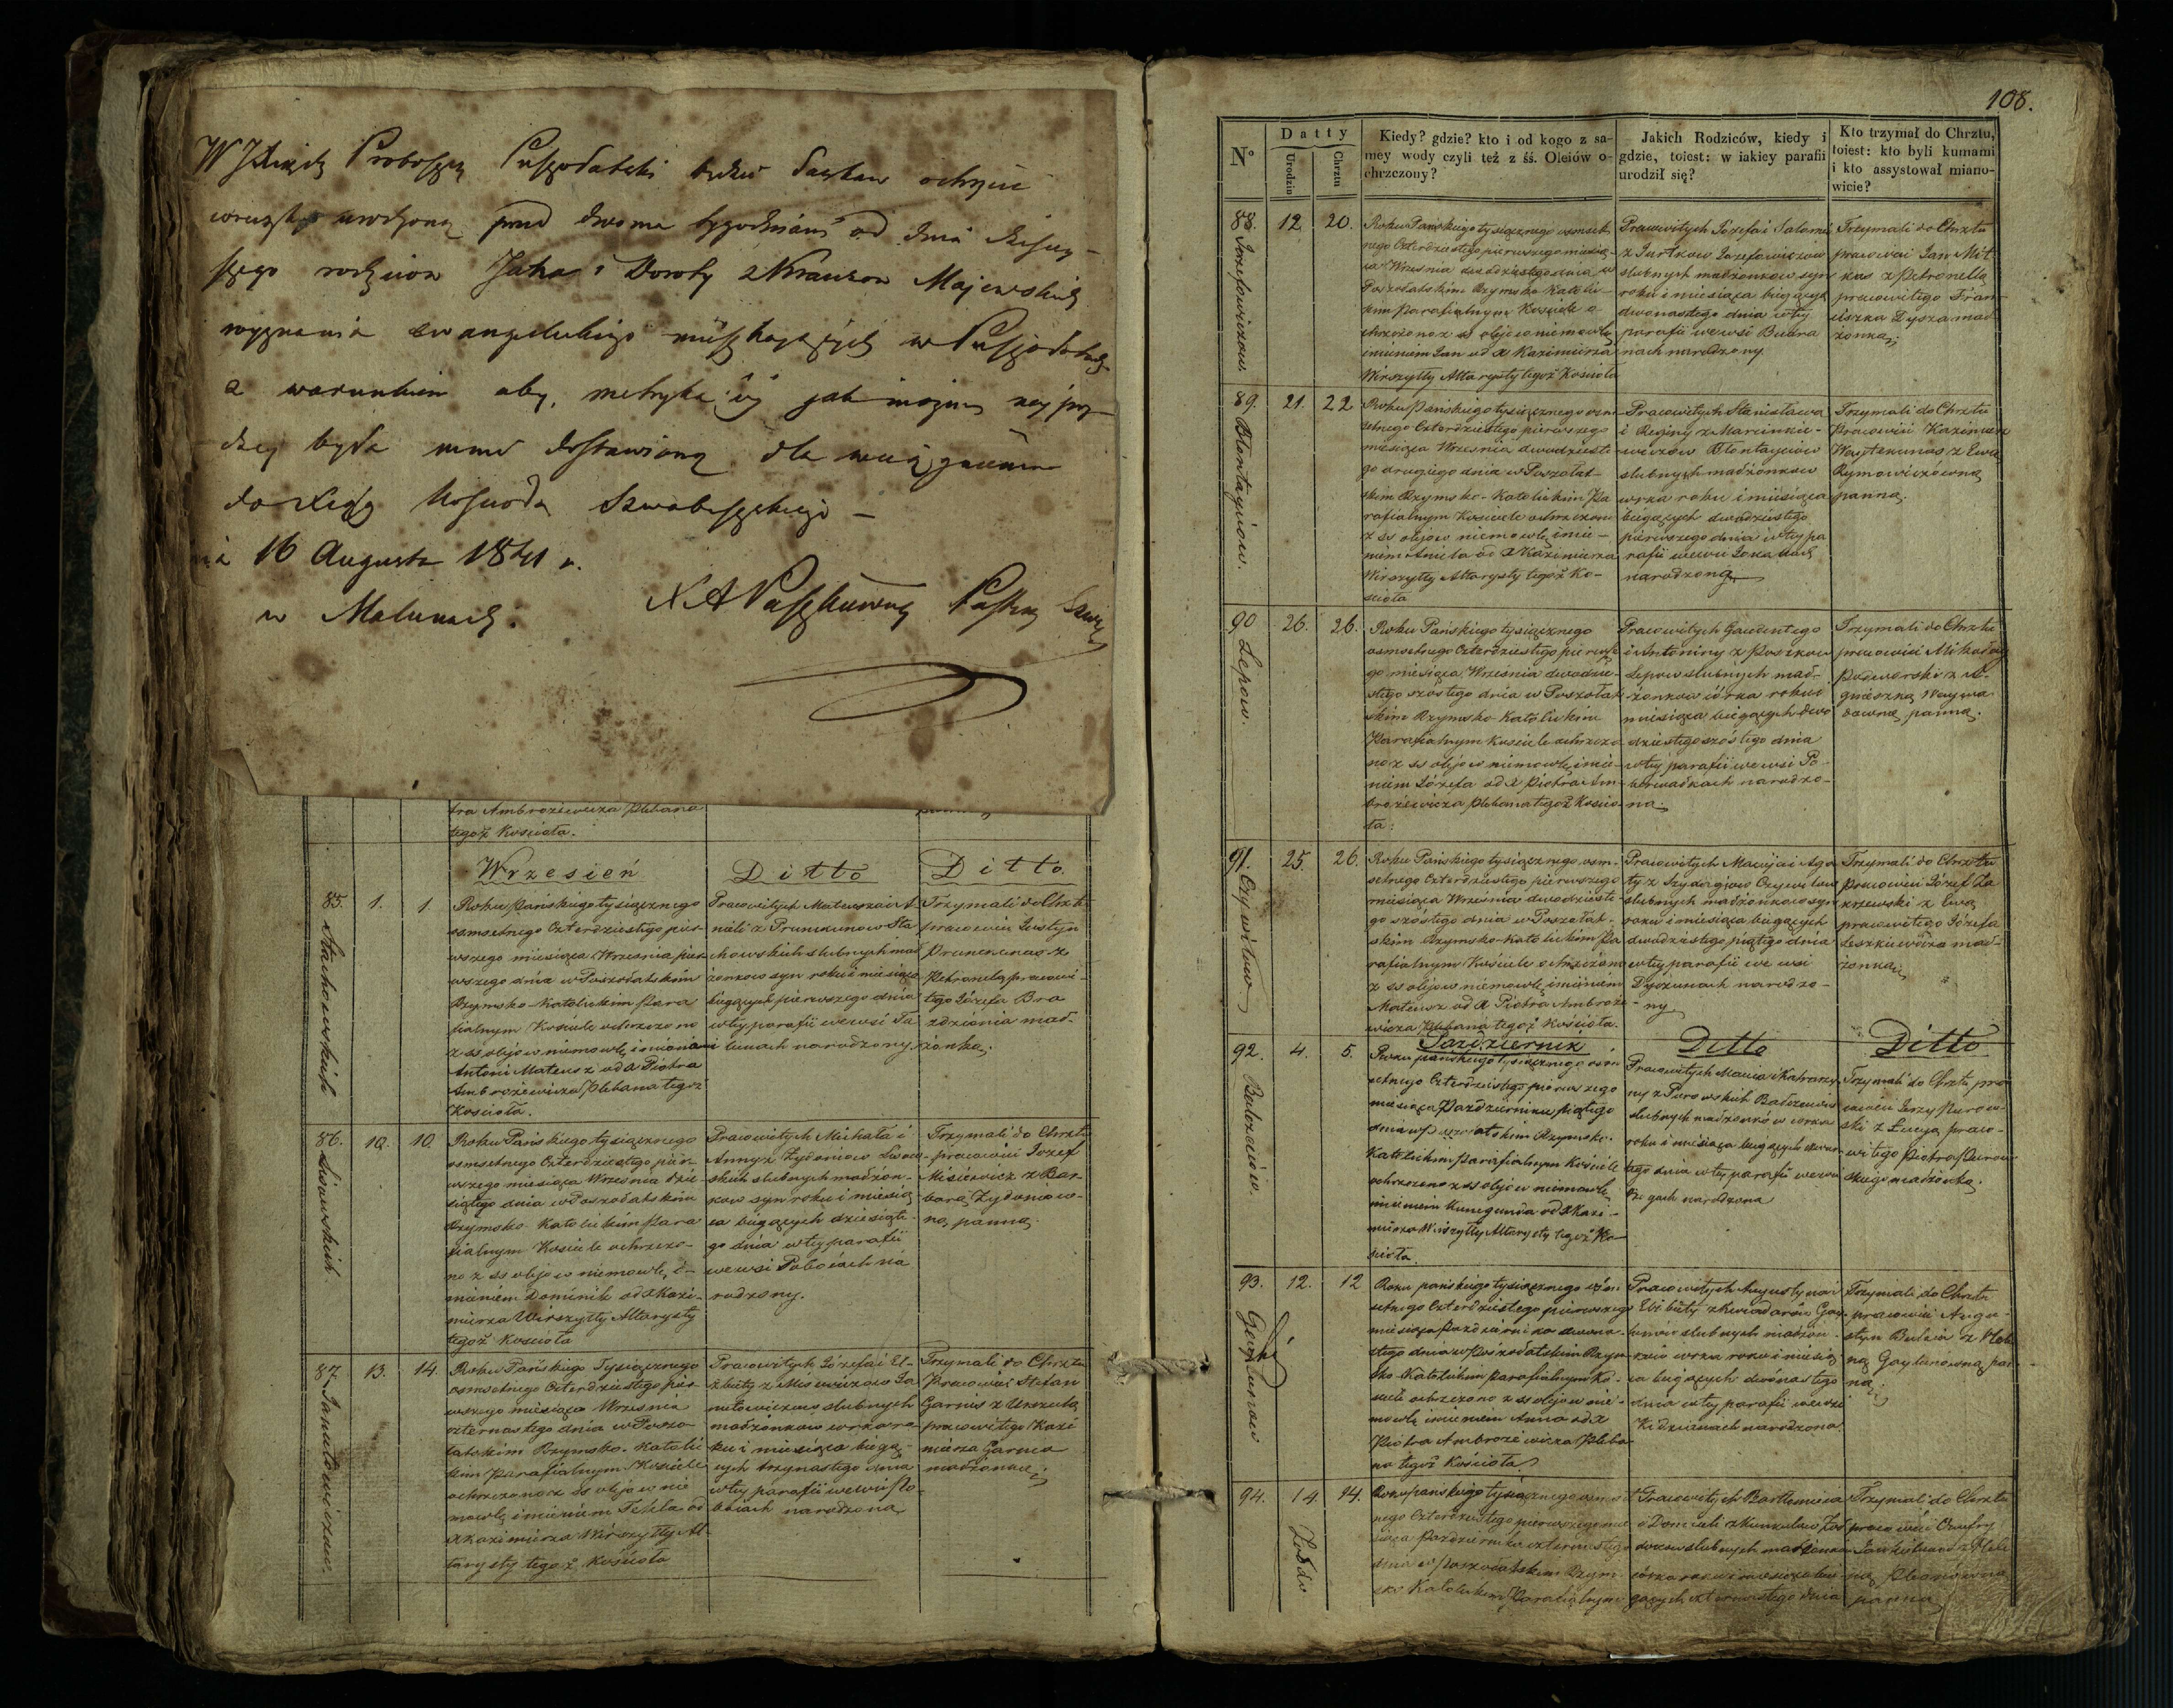 W JXiądz Proboszcz Puszołatski będzie łaskaw ochrzcić
urodzoną przed dwoma tygodniami od dnia
rodziców Jana i Doroty z Krauzow Majewskich
wyznania ewangelickiego mieszkających w Puszołatach
z warunkiem aby, metryka jak można
była mnie dostawioną dla
do Xiąg Kościoła
16 Augusta 1841 r.
w
tra Ambrożewicza Plebana
tegoż Kościoła.
Wrzesień Ditto Ditto
85. Stachowskich
1. 1.
Roku Pańskiego tysiącznego
osmsetnego Czterdziestego pier-
wszego miesiąca Września pier
wszego dnia w Poszołatskim
Rzymsko-Katolickim Para
fialnym Kościele ochrzczono
z ss olejow niemowlę imionami
Antoni Mateusz od X Piotra
Ambrożewicza Plebana tegoż
Kościoła.
Pracowitych Mateusza i A
nieli z Prunskunow Sta
chowskich slubnych mał
żonkow syn roku i miesiąca
bieżących pierwszego dnia
w tey parafii we wsi Ta
lunach narodzony.
Trzymali do Chrztu
pracowici Justyn
z
Petronelą pracowi-
tego Józefa Bra
zdzionia mał-
żonką.
86. Lisowskich.
10. 10.
Roku Pańskiego tysiącznego
osmsetnego Czterdziestego pier-
wszego miesiąca Września dzie
siątego dnia w Poszołatskim
Rzymsko Katolickim Para
fialnym Kościele ochrzczo-
no z ss olejow niemowlę i-
mieniem Dominik od X Kazi-
mierza Wirszyłły Altarysty
tegoż Kościoła
Pracowitych Michała i
Anny z Zydoniow Lisow-
skich slubnych małżon-
kow syn roku i miesią
ca bieżących dziesiąte-
go dnia w tey parafii
we wsi Pobociach na
rodzony.
Trzymali do Chrztu
pracowici Jozef
Misiewicz z Bar-
barą Zydoniow-
ną panną.
87. Janułowiczow.
13. 14.
Roku Pańskiego Tysiącznego
osmsetnego Czterdziestego pier
wszego miesiąca Września
czternastego dnia w Poszo
łatskim Rzymsko-Katolic
kim Parafialnym Kościele
ochrzczono z ss olejow nie
mowlę imieniem Tekla od
X Kazimierza Wirszyłły Al-
tarysty tegoż Kościoła
Pracowitych Józefa i El-
żbiety z Misiewiczow Ja
nułowiczow slubnych
małżonkow corka ro
ku i miesiąca bieżą-
cych trzynastego dnia
w tey parafii we wsi Po-
bociach narodzona
Trzymali do Chrztu
Pracowici Stefan
Garnis z Urszulą
pracowitego Kazi
mierza Garnca
małżonką
108.
Nº
Datty
Urodzin
Chrztu
Kiedy? gdzie? kto i od kogo z sa-
mey wody czyli też z śś. Oleiów o-
chrzczony?
Jakich Rodziców, kiedy i
gdzie, toiest: w iakiey parafii
urodził się?
Kto trzymał do Chrztu,
toiest: kto byli kumami
i kto assystował miano-
wicie?
88. Jozefowiczow.
12 20.
Roku Pańskiego tysiącznego osmset-
nego Czterdziestego pierwszego miesią-
ca Września dwudziestego dnia w
Poszołatskim Rzymsko Katolic-
kim Parafialnym Kościele o-
chrzczono z ss olejow niemowlę
imieniem Jan od X Kazimierza
Wirszyłły Altarysty tegoż Kościoła
Pracowitych Józefa i Salomei
z Jozefowiczow
slubnych małżonkow syn
roku i miesiąca bieżących
dwonastego dnia w tey
parafii we wsi
narodzony
Trzymali do Chrztu
pracowici Jan Mit
kus z Petronellą
pracowitego Fran-
ciszka Dysza mał
żonką.
89. Błontayciow.
21. 22
Roku Pańskiego tysiącznego osm-
setnego Czterdziestego pierwszego
miesiąca Września dwudzieste-
go drugiego dnia w Poszołat-
skim Rzymsko-Katolickim Pa
rafialnym Kosciele ochrzczono
z ss olejow niemowlę imie-
niem Aniela od X Kazimierza
Wirszyłły Altarysty tegoż Ko-
ścioła
Pracowitych Stanisława
i Reginy z Marcinkie-
wiczow Błontayciow
slubnych małżonkow
corka roku i miesiąca
bieżących dwudziestego
pierwszego dnia w tey pa
rafii we wsi
narodzona
Trzymali do Chrztu
Pracowici Kazimierz
Waytekunas z Ewą
Rymowiczówną
panną.
90 Lepow.
26. 26.
Roku Pańskiego tysiącznego
osmsetnego Czterdziestego pierwsze
go miesiąca Września dwudzie-
stego szostego dnia w Poszołat
skim Rzymsko-Katolickim
Parafialnym Kosciele ochrzczo
no z ss olejow niemowlę imie-
niem Józefa od X Piotra Am-
brożewicza Plebana tegoż Koscio-
ła.
Pracowitych Gaudentego
i Antoniny z
Lepow slubnych mał-
żonkow córka roku i
miesiąca bieżących dwu
dziestego szóstego dnia
w tey parafii we wsi Po-
narodzo-
na.
Trzymali do Chrztu
pracowici Mikołay
z A-
gnieszką
panną.
91. Czywilow
25. 26.
Roku Pańskiego tysiącznego osm-
setnego Czterdziestego pierwszego
miesiąca Września dwudzieste-
go szóstego dnia w Poszołat-
skim Rzymsko-Katolickim Pa
rafialnym Kościele ochrzczono
z ss olejow niemowlę imieniem
Mateusz od X Piotra Ambroże-
wicza Plebana tegoż Kościoła.
Pracowitych Macieja i Aga
ty z Czywilow
slubnych małżonkow syn
roku i miesiąca bieżących
dwudziestego piątego dnia
w tey parafii we wsi
Dyszunach narodzo-
ny
Trzymali do Chrztu
Pracowici Józef Za
krzewski z Ewą
pracowitego Józefa
Leszkiewicza mał-
żonką
Pazdziernik Ditto Ditto
92. Balzeciow.
4. 5.
Roku pańskiego tysiącznego osm
setnego Czterdziestego pierwszego
miesiąca Października piątego
dnia w Poszołatskim Rzymsko-
Katolickim Parafialnym Kościele
ochrzczono z ss olejow niemowlę
imieniem Kunegunda od X Kazi-
mierza Wirszyłły Altarysty tegoż Ko
ścioła.
Pracowitych Macieja i Katarzy-
ny z Purowskich
slubnych małżonków corka
roku i miesiąca bieżących czwar-
tego dnia w tey parafii we wsi
narodzona
Trzymali do Chrztu pra
cowici Jerzy Purow-
ski z Łucyą praco-
witego Piotra Purow
skiego małżonką.
93. Gaylunow
12. 12
Roku pańskiego tysiącznego osm
setnego Czterdziestego pierwszego
miesiąca Października dwuna-
stego dnia w Poszołatskim Rzym
sko Katolickim parafialnym Ko-
ściele ochrzczono z ss olejow nie-
mowlę imieniem Anna od X
Piotra Ambrożewicza Pleba
na tegoż Kościoła
Pracowitych Augustyna i
Elżbiety z Gay-
lunów slubnych małżon-
ków corka roku i miesią
ca bieżących dwónastego
dnia w tey parafii we wsi
narodzona.
Trzymali do Chrztu
pracowici Augu-
styn z Hele
ną Gaylunówną pan
ną.
94.
14 14.
Roku pańskiego tysiącznego osmset
nego Czterdziestego pierwszego mie
siąca Pazdziernika czternastego
dnia w Poszołatskim Rzym-
sko Katolickim Parafialnym
Pracowitych Bartłomieja
i Domiceli
slubnych małżonkow
córka roku i miesiąca bie-
żących czternastego dnia
Trzymali do Chrztu
pracowici Onufry
z Hele
ną
panną